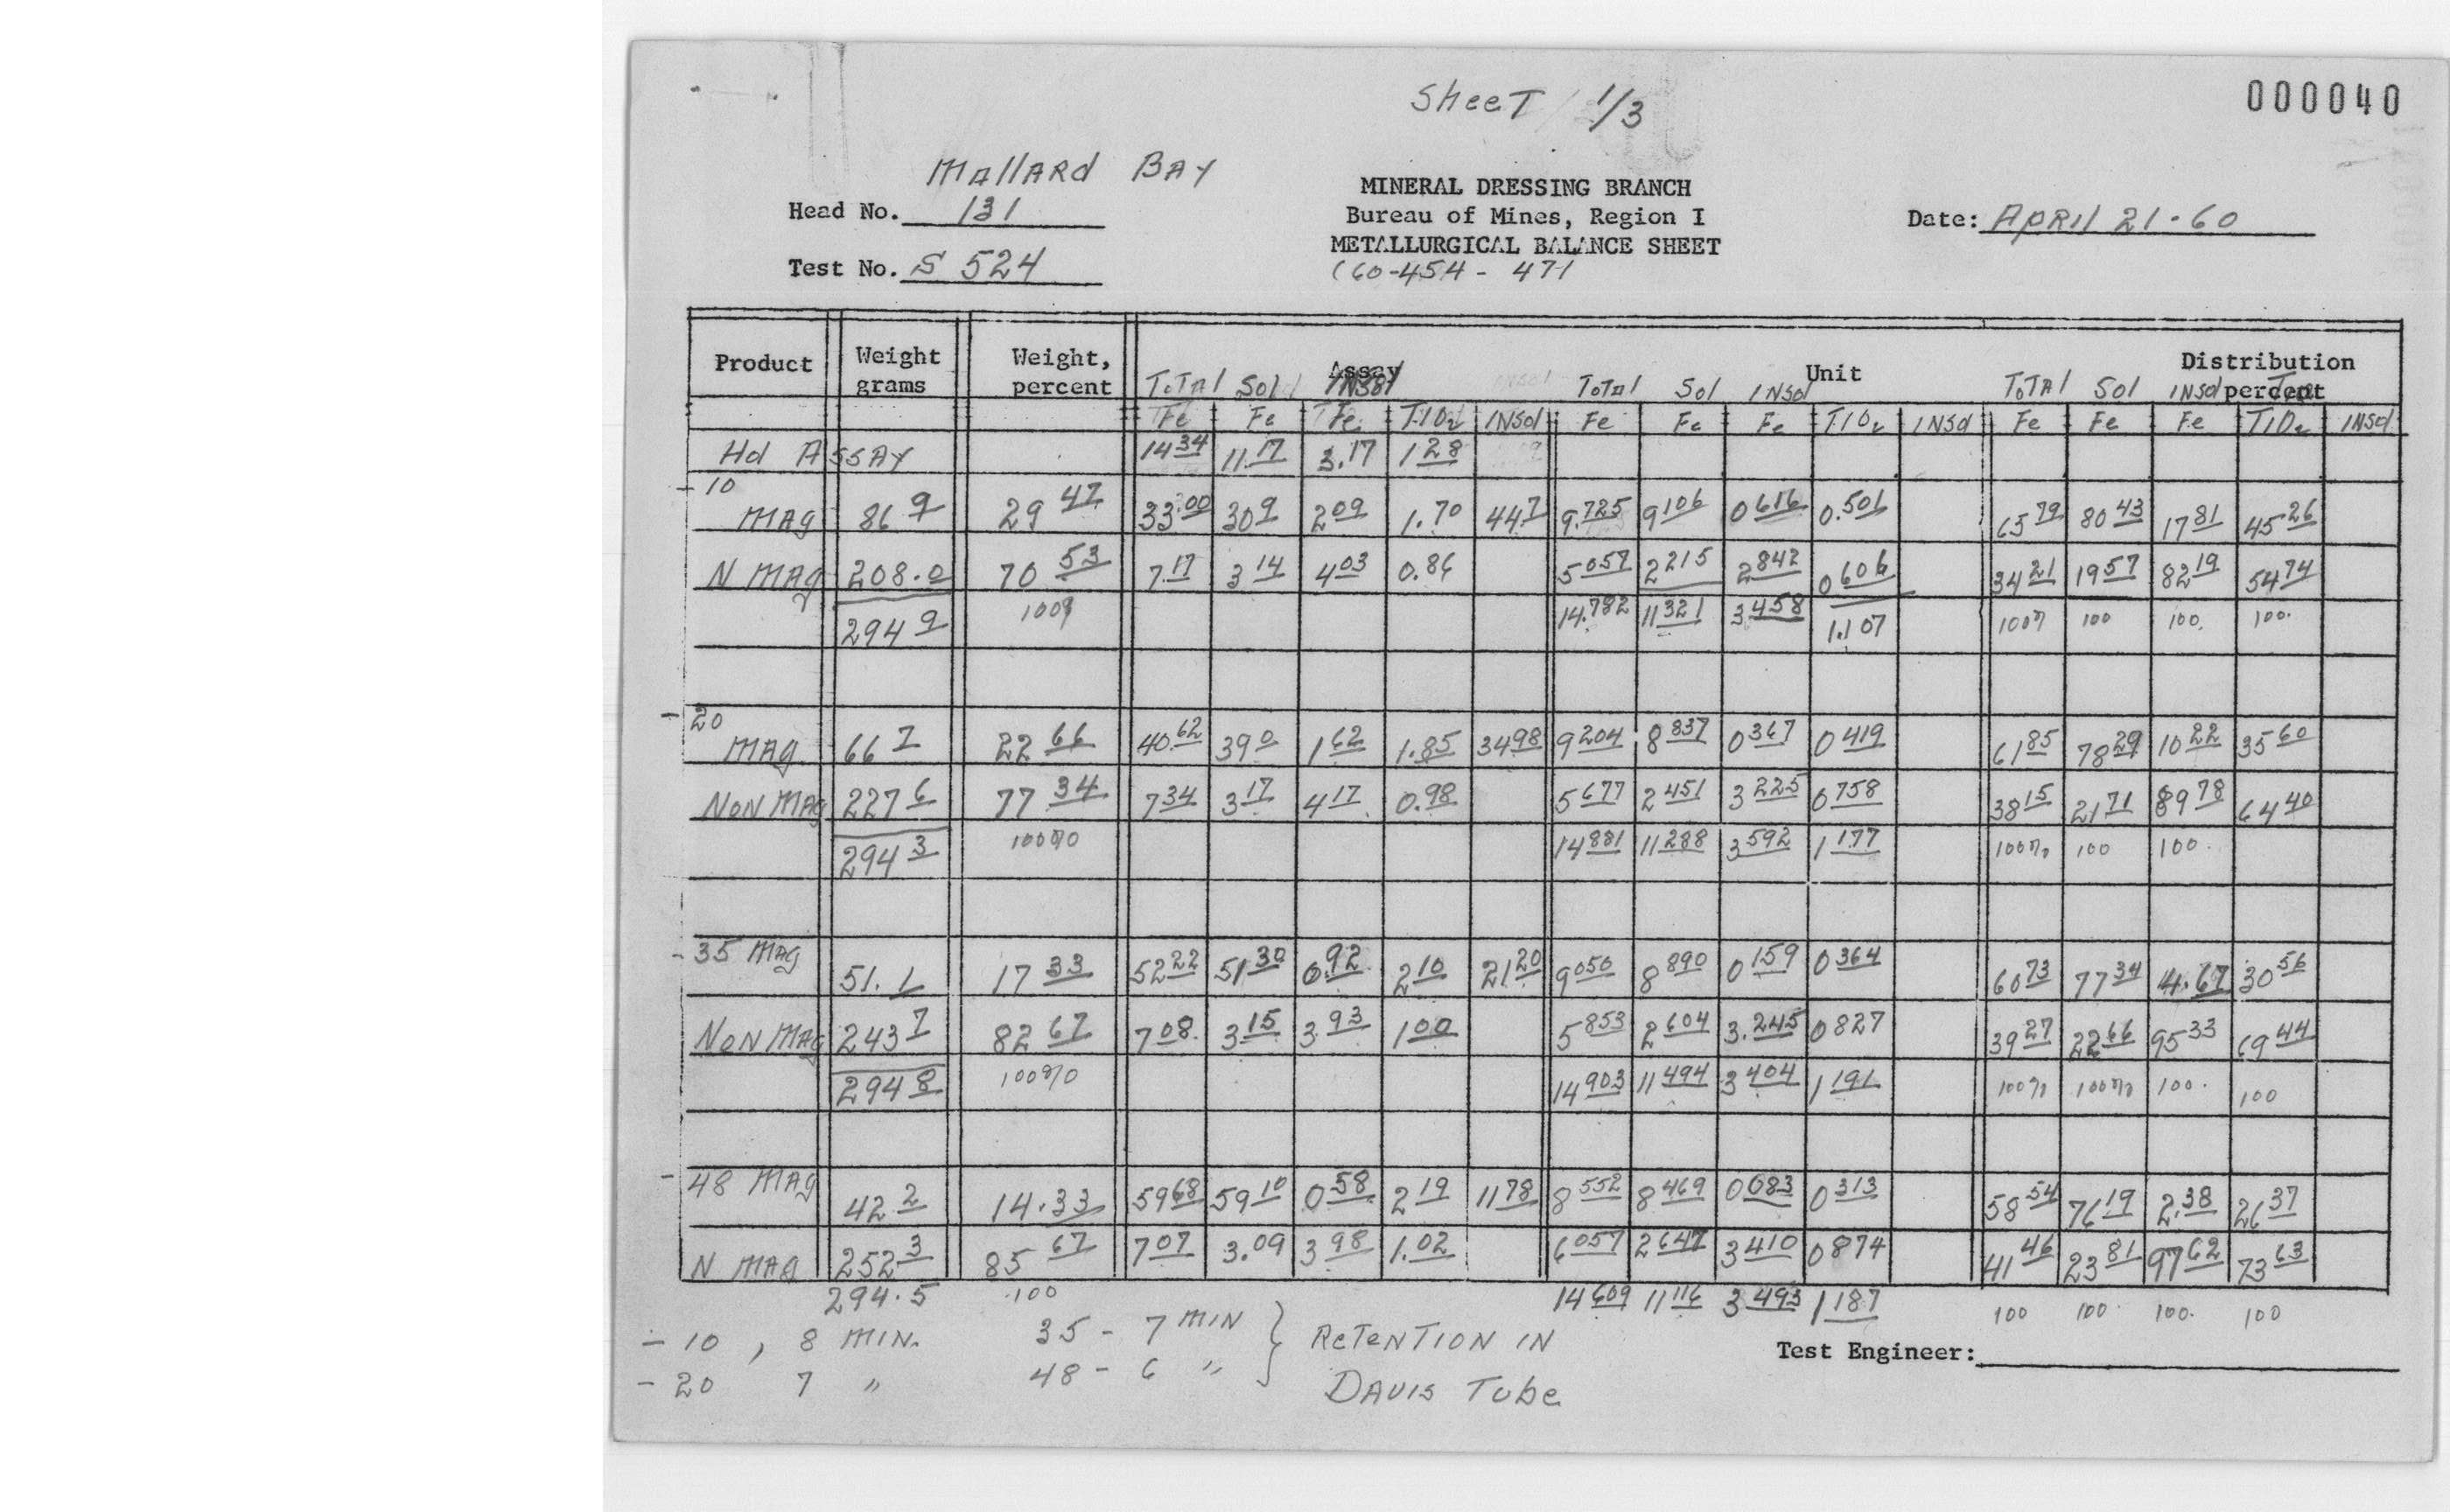 Sheet 1/3
000040
Mallard Bay
MINERAL DRESSING BRANCH
Head No. 131
Bureau of Mines, Region I
Date: April 21-60
METALLURGICAL BALANCE SHEET
Test No. S 524
(60-454 - 471
Product Weight grams Weight, percent Assay Unit Distribution percent
Total Sol Insol Total Sol Insol Total Sol Insol
Fe Fe Fe TiO2 Insol Fe Fe Fe TiO2 Insol Fe Fe Fe TiO2 Insol
Hd Assay 14.34 11.17 3.17 1.28
-10
Mag 86.9 29.47 33.00 30.9 2.09 1.70 44.7 9.725 9.106 0.616 0.501 65.79 80.43 17.81 45.26
N Mag 208.0 70.53 7.17 3.14 4.03 0.86 5.057 2.215 2.842 0.606 34.21 19.57 82.19 54.74
294.9 100% 14.782 11.321 3.458 1.107 100% 100 100. 100.
-20
Mag. 66.7 22.66 40.62 39.0 1.62 1.85 34.98 9.204 8.837 0.367 0.419 61.85 78.29 10.22 35.60
Non Mag 227.6 77.34 7.34 3.17 4.17 0.98 5.677 2.451 3.225 0.758 38.15 21.71 89.78 64.40
294.3 100% 14.881 11.288 3.592 1.177 100% 100 100.
-35 Mag 51.1 17.33 52.22 51.30 0.92 2.10 21.20 9.050 8.890 0.159 0.364 60.73 77.34 4.67 30.56
Non Mag 243.7 82.67 7.08 3.15 3.93 1.00 5.853 2.604 3.245 0.827 39.27 22.66 95.33 69.44
294.8 100% 14.903 11.494 3.404 1.191 100% 100% 100. 100
-48 Mag 42.2 14.33 59.68 59.10 0.58 2.19 11.78 8.552 8.469 0.083 0.313 58.54 76.19 2.38 26.37
N Mag 252.3 85.67 7.07 3.09 3.98 1.02 6.057 2.647 3.410 0.874 41.46 23.81 97.62 73.63
294.5 100 14.609 11.116 3.493 1.187 100 100. 100. 100
-10, 8 min. 35 - 7 min } Retention in
-20 7 " 48 - 6 " Davis Tube
Test Engineer: